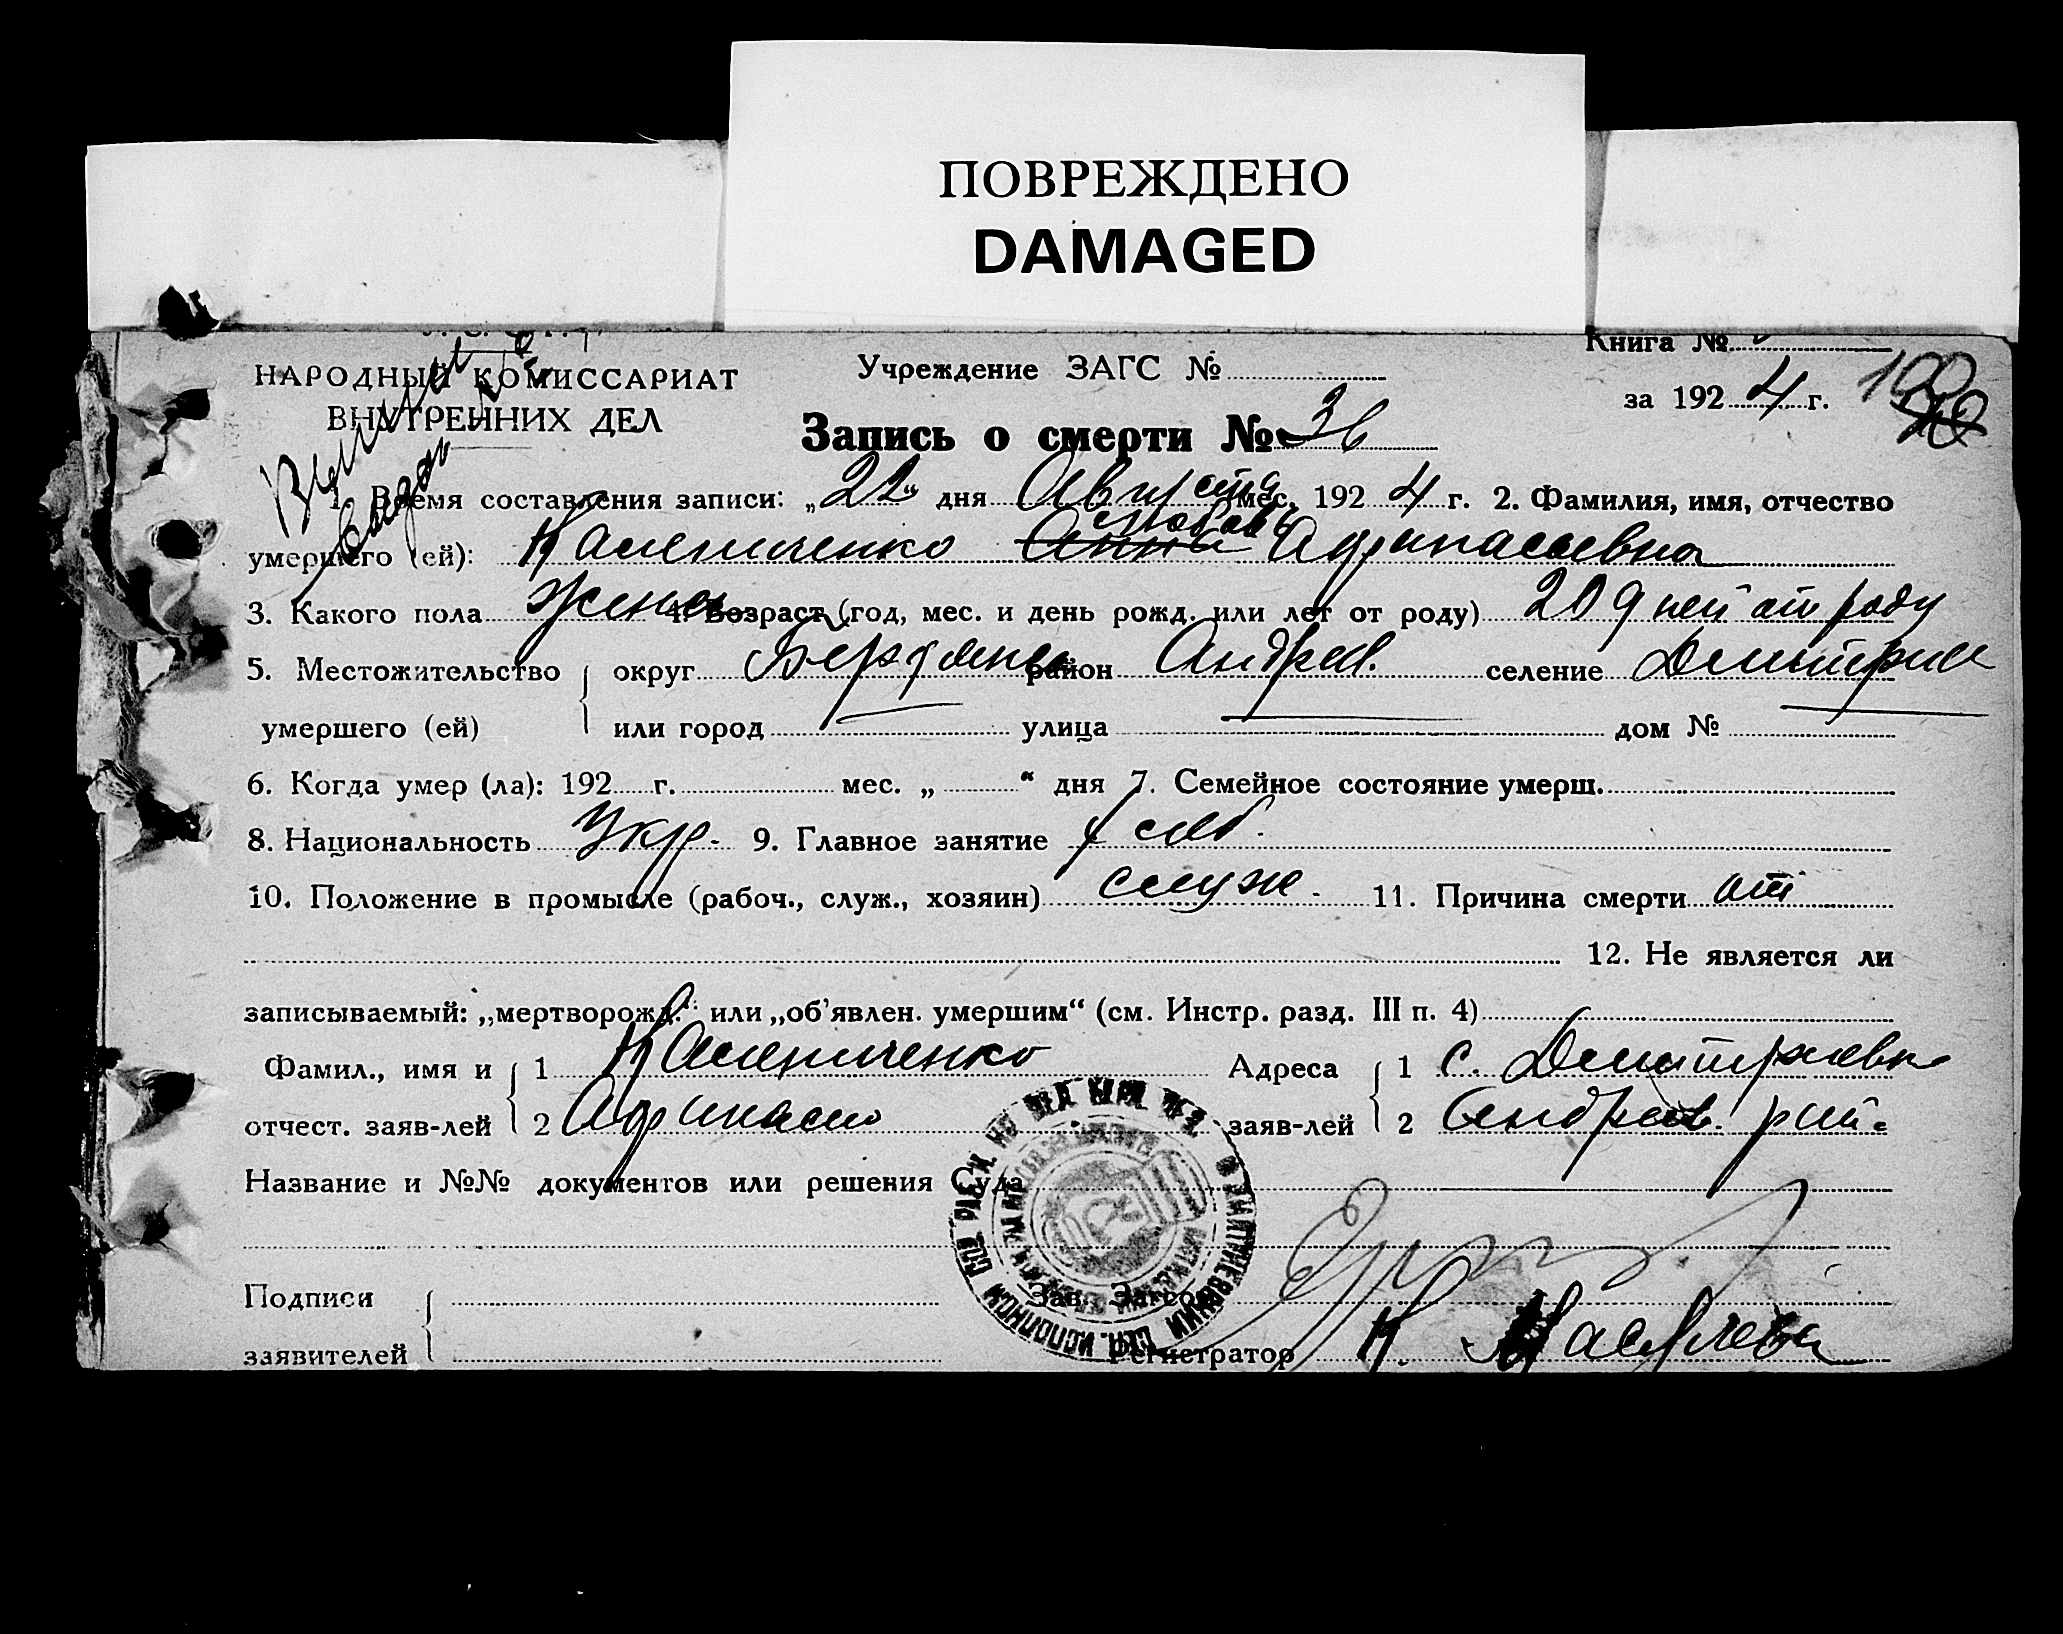 ПОВРЕЖДЕНО
DAMAGED
Книга №
НАРОДНЫЙ КОМИССАРИАТ
ВНУТРЕННИХ ДЕЛ
Учреждение ЗАГС №
за 1924 г.
Запись о смерти № 36
1. Время составления записи: „22“ дня Августа мес. 1924 г. 2. Фамилия, имя, отчество
умершего (ей): Калениченко Анна Афанасьевна
3. Какого пола жен 4. Возраст (год, мес. и день рожд. или лет от роду) 20 дней от роду
5. Местожительство округ Бердянск район Андреев. селение Дмитрие
умершего (ей) или город улица дом №
6. Когда умер (ла): 192 г. мес. „ “ дня 7. Семейное состояние умерш.
8. Национальность Укр. 9. Главное занятие
10. Положение в промысле (рабоч., служ., хозяин) служ. 11. Причина смерти от
12. Не является ли
записываемый: „мертворожд.“ или „об’явлен. умершим“ (см. Инстр. разд. III п. 4)
Фамил., имя и 1 Калениченко Адреса 1 с. Дмитриевка
отчест. заяв-лей 2 Афанасий заяв-лей 2 Андреев. рай.
Название и №№ документов или решения Суда
Подписи Зав. Загсом
заявителей Регистратор